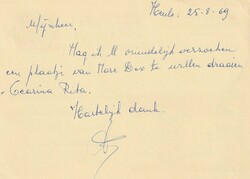 Heule, 25-8-69
Mijnheer,
Mag ik U vriendelijk verzoeken
een plaatje van Marc Dex te willen draaien
Cearina Rita.
Hartelijk dank.